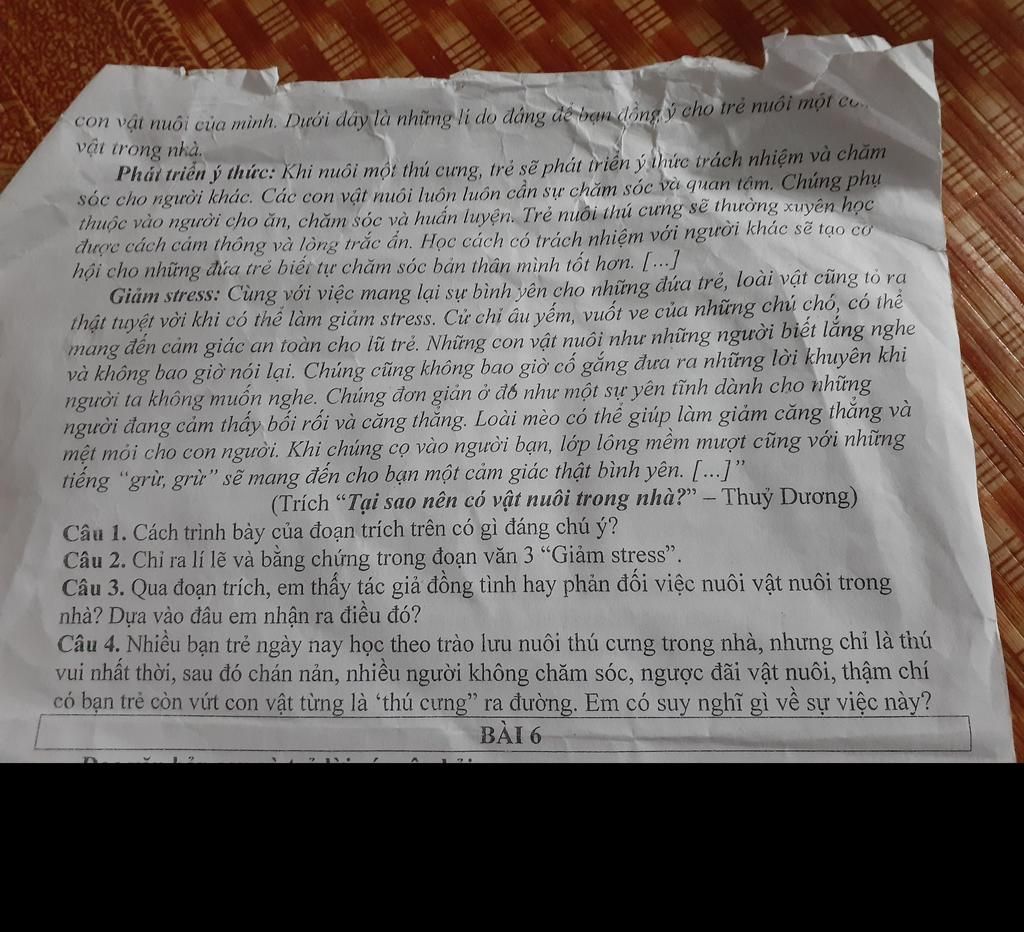 con vật nuôi của mình. Dưới đây là những lí do đáng để bạn đồng ý cho trẻ nuôi một
vật trong nhà.
Phát triển ý thức: Khi nuôi một thú cưng, trẻ sẽ phát triển ý thức trách nhiệm và chăm
sóc cho người khác. Các con vật nuôi luôn luôn cần sự chăm sóc và quan tâm. Chúng phụ
thuộc vào người cho ăn, chăm sóc và huấn luyện. Trẻ nuôi thú cưng sẽ thường xuyên học
được cách cảm thông và lòng trắc ẩn. Học cách có trách nhiệm với người khác sẽ tạo cơ
hội cho những đứa trẻ biết tự chăm sóc bản thân mình tốt hơn. [...]
Giảm stress: Cùng với việc mang lại sự bình yên cho những đứa trẻ, loài vật cũng tỏ ra
thật tuyệt vời khi có thể làm giảm stress. Cử chỉ âu yếm, vuốt ve của những chú chó, có thể
mang đến cảm giác an toàn cho lũ trẻ. Những con vật nuôi như những người biết lắng nghe
và không bao giờ nói lại. Chúng cũng không bao giờ cố gắng đưa ra những lời khuyên khi
người ta không muốn nghe. Chúng đơn giản ở đó như một sự yên tĩnh dành cho những
người đang cảm thấy bối rối và căng thẳng. Loài mèo có thể giúp làm giảm căng thẳng và
mệt mỏi cho con người. Khi chúng cọ vào người bạn, lớp lông mềm mượt cũng với những
tiếng “grừ, grừ” sẽ mang đến cho bạn một cảm giác thật bình yên. [...]”
(Trích “Tại sao nên có vật nuôi trong nhà?” – Thuỳ Dương)
Câu 1. Cách trình bày của đoạn trích trên có gì đáng chú ý?
Câu 2. Chỉ ra lí lẽ và bằng chứng trong đoạn văn 3 “Giảm stress”.
Câu 3. Qua đoạn trích, em thấy tác giả đồng tình hay phản đối việc nuôi vật nuôi trong
nhà? Dựa vào đâu em nhận ra điều đó?
Câu 4. Nhiều bạn trẻ ngày nay học theo trào lưu nuôi thú cưng trong nhà, nhưng chỉ là thú
vui nhất thời, sau đó chán nản, nhiều người không chăm sóc, ngược đãi vật nuôi, thậm chí
có bạn trẻ còn vứt con vật từng là ‘thú cưng” ra đường. Em có suy nghĩ gì về sự việc này?
BÀI 6